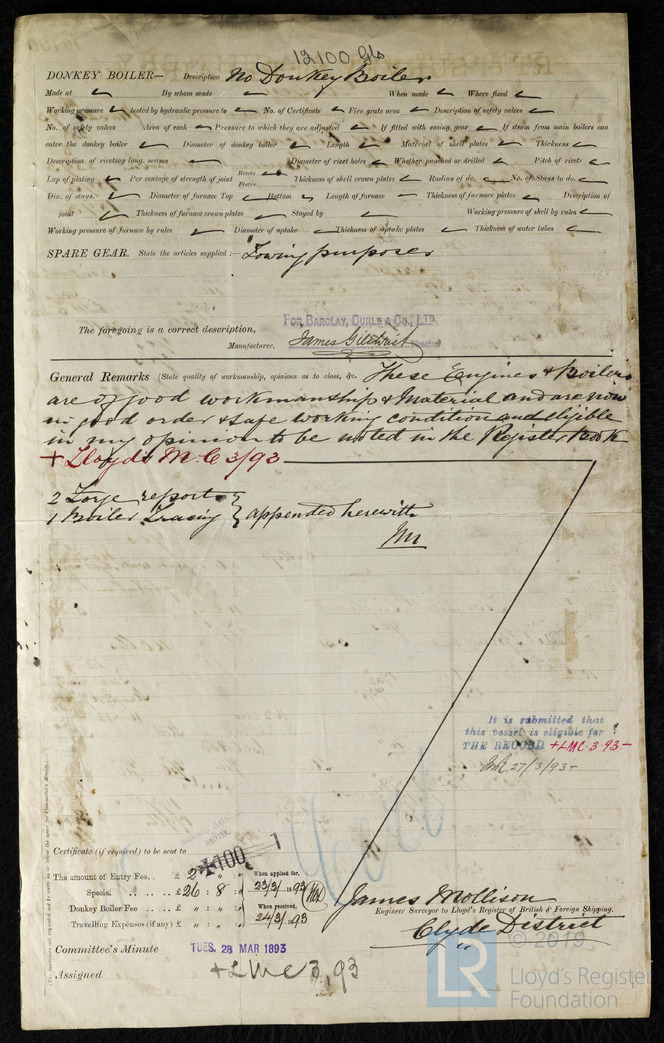 12100 Gls
DONKEY BOILER— Description No Donkey Boiler
Made at By whom made When made Where fixed
Working pressure tested by hydraulic pressure to No. of Certificate Fire grate area Description of safety valves
No. of safety valves Area of each Pressure to which they are adjusted If fitted with easing gear If steam from main boilers can
enter the donkey boiler Diameter of donkey boiler Length Material of shell plates Thickness
Description of riveting long. seams Diameter of rivet holes Whether punched or drilled Pitch of rivets
Lap of plating Per centage of strength of joint Rivets Plates Thickness of shell crown plates Radius of do. No. of Stays to do.
Dia. of stays. Diameter of furnace Top Bottom Length of furnace Thickness of furnace plates Description of
joint Thickness of furnace crown plates Stayed by Working pressure of shell by rules
Working pressure of furnace by rules Diameter of uptake Thickness of uptake plates Thickness of water tubes
SPARE GEAR. State the articles supplied:— Towing purposes
The foregoing is a correct description,
FOR BARCLAY, CURLE & CO., LTD.
Manufacturer. James Gilchrist Director
General Remarks (State quality of workmanship, opinions as to class, &c. These Engines & Boilers
are of good workmanship & Material and are now
in good order & safe working condition and eligible
in my opinion to be noted in the Register Book
+ Lloyd's M.C 3/93
2 Forge reports
1 Boiler Tracing } appended herewith
JM
It is submitted that
this vessel is eligible for
THE RECORD +LMC.3.93.-
27/3/93-
Certificate (if required) to be sent to
The amount of Entry Fee. . . £ 2 " : " : When applied for,
Special . . . . . £ 26 : 8 : 23/3/1893
Donkey Boiler Fee . . £ " : " : When received,
Travelling Expenses (if any) £ " : " : 24/3/93
James Mollison
Engineer Surveyor to Lloyd's Register of British & Foreign Shipping.
Clyde District
Committee's Minute TUES. 28 MAR 1893
Assigned + LMC 3,93
© 2019
LR Lloyd's Register
Foundation